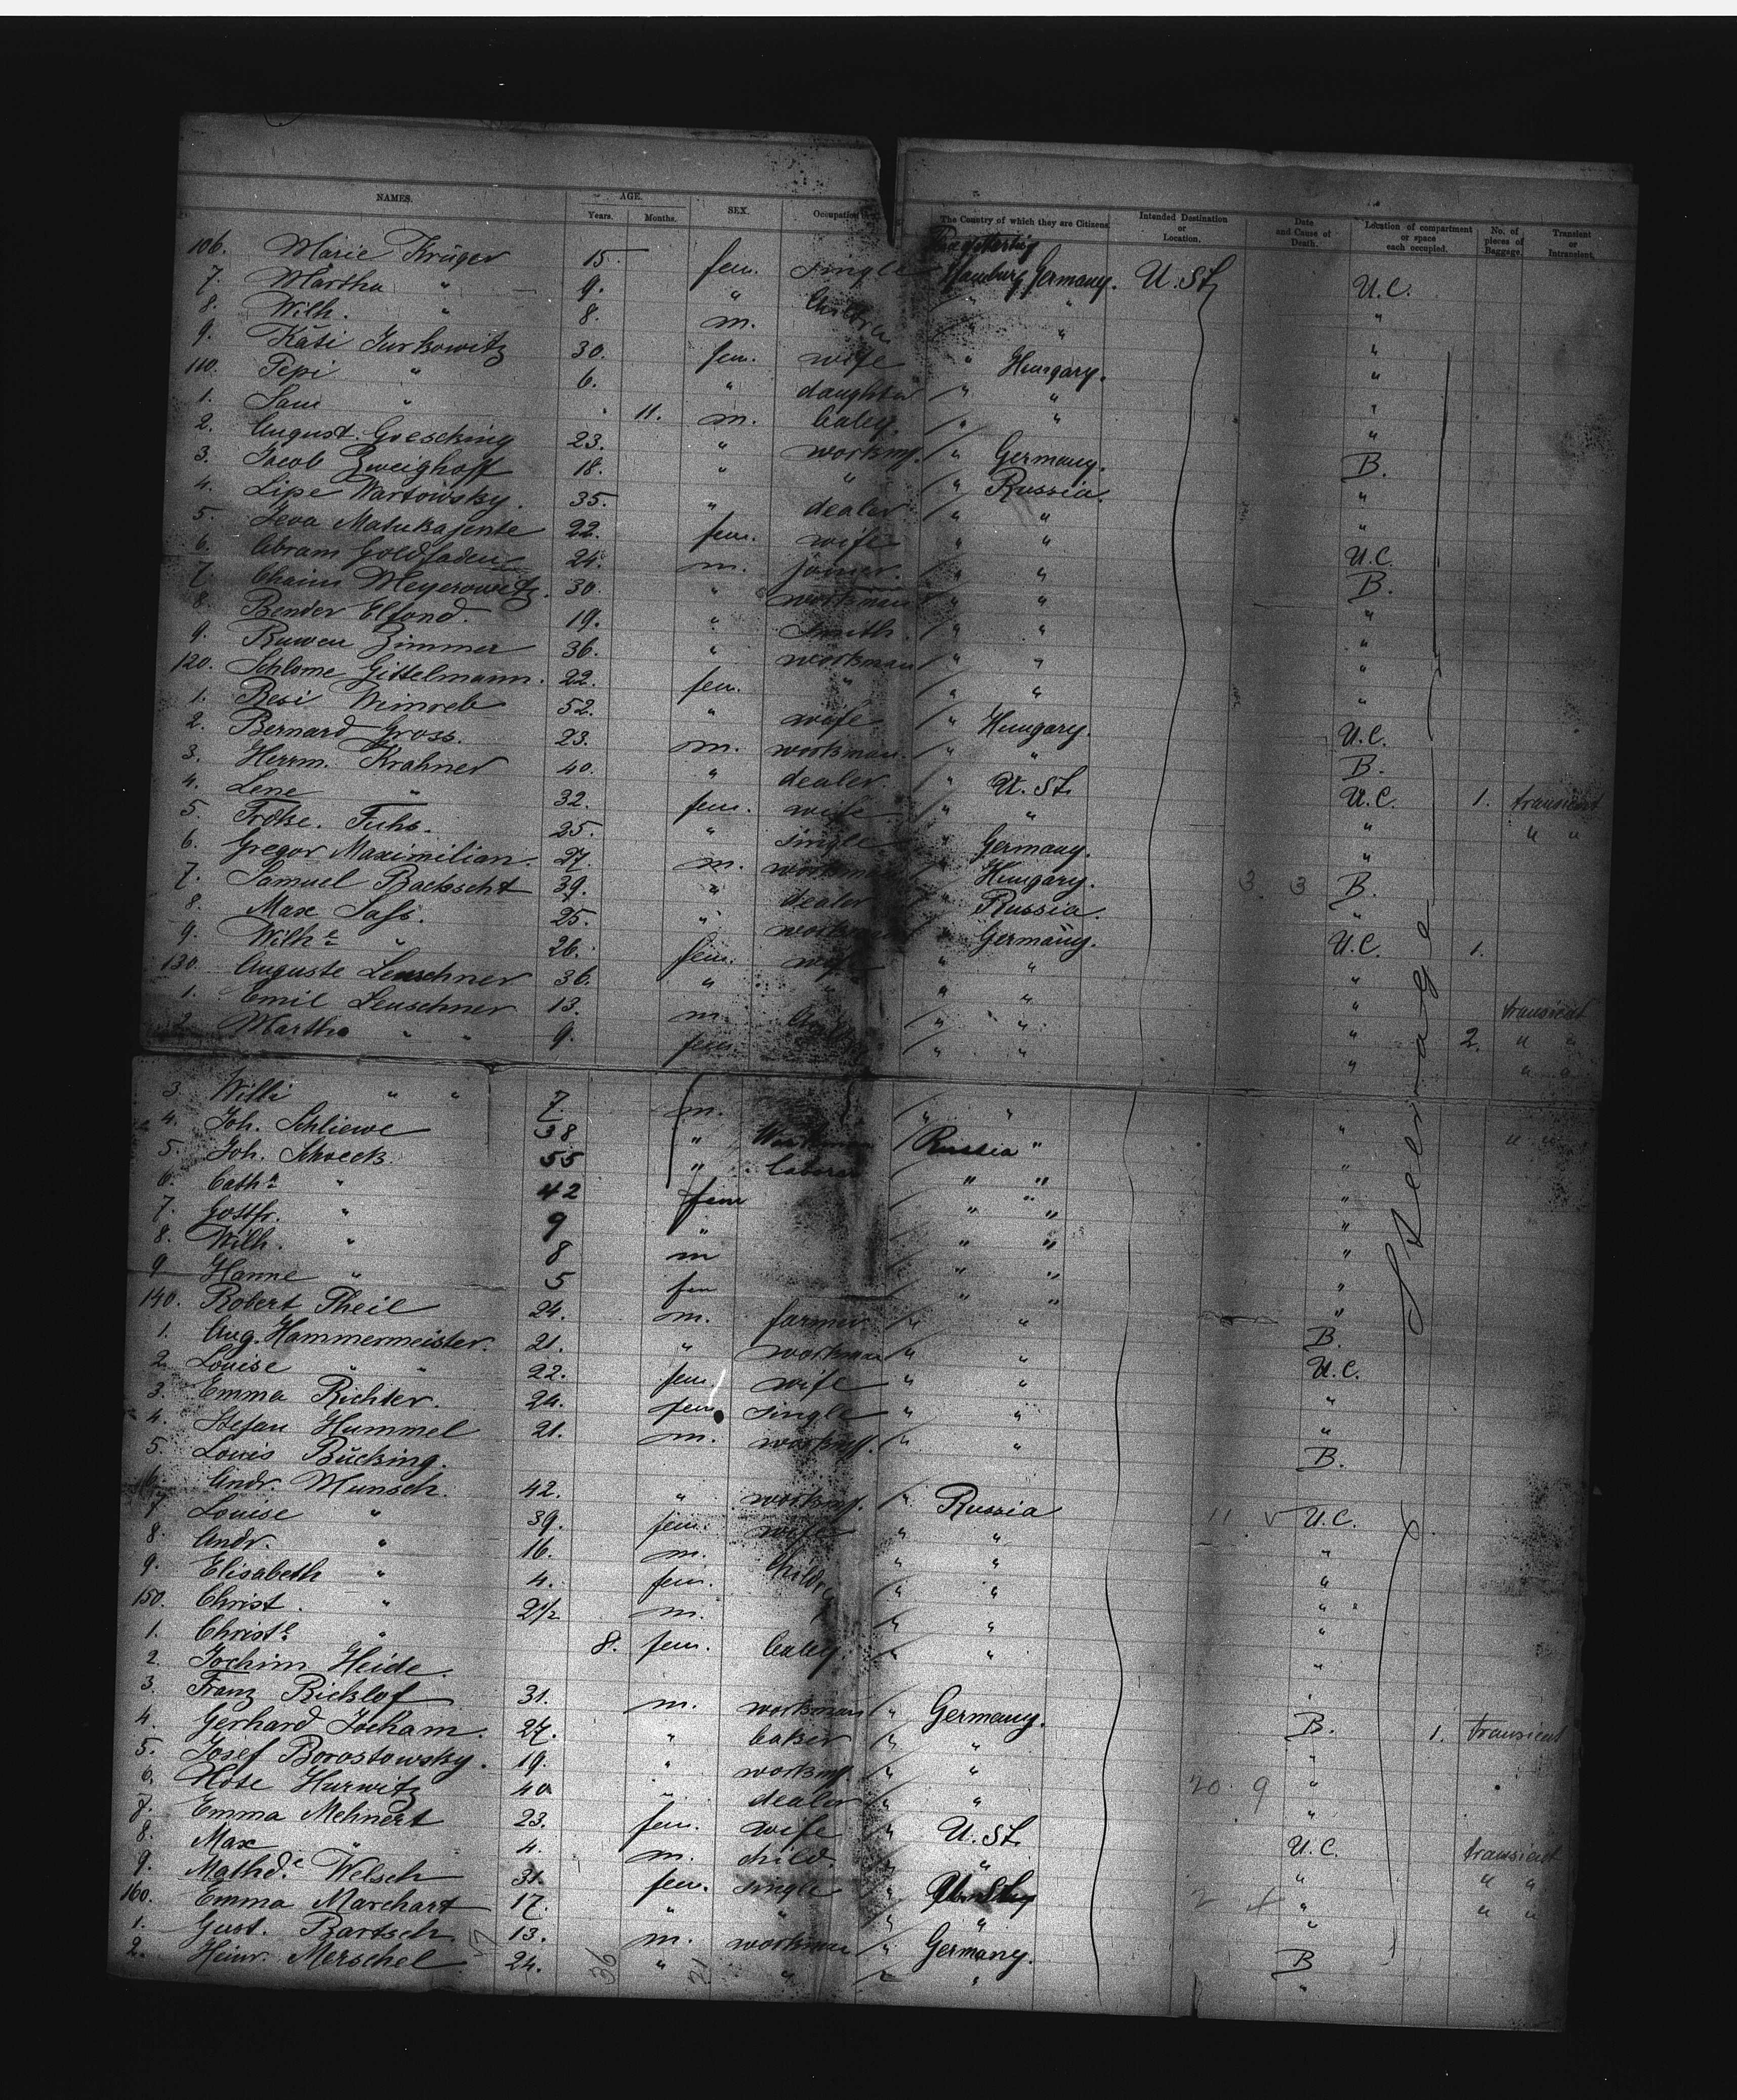 NAMES. AGE. Years. Months. SEX. Occupation The Country of which they are Citizens Intended Destination or Location. Date and Cause of Death. Location of compartment or space each occupied. No. of pieces of Baggage. Transient or Intransient.
106. Marie Krüger 15. fem. single Hamburg Germany. U. St. U.C.
7. Martha " 9. " Children " " "
8. Wilh. " 8. m. " " "
9. Käti Jurkowitz 30. fem. wife " Hungary. "
110. Pepi " 6. " daughter " " "
1. Sam " 11. m. baby. " " "
2. August Goesching 23. " workmg. " Germany. B.
3. Jacob Zweighoff 18. " " " Russia. "
4. Lipe Wartowsky. 35. " dealer " " "
5. Ieva Matukajente 22. fem. wife " " U.C.
6. Abram Goldfaden 24. m. joiner. " " B.
7. Chaim Meyerowitz. 30. " workman " " "
8. Bender Elfond. 19. " smith. " " "
9. Ruwen Zimmer 36. " workman " " "
120. Schlome Gittelmann. 22. fem. " " " "
1. Resi Weinreb 52. " wife " Hungary. U.C.
2. Bernard Gross. 23. m. workman. " " B.
3. Herrm. Krahner 40. " dealer. " U. St. U.C. 1. transient
4. Lene " 32. fem. wife " " " " "
5. Fuhs. 25. " single " Germany. "
6. Gregor Maximilian. 27. m. workman " Hungary. 3 3 B.
7. Samuel Backscht 39. " dealer " Russia. "
8. Max Sass. 25. " workman " Germany. U.C. 1.
9. Wilhe " 26. fem. wife " " "
130. Auguste Leuschner 36. " " " " " transient
1. Emil Leuschner 13. m. " " " 2. " "
2. Martha " " 9. fem. " " " " "
3. Willi " " 7. m. " " " " "
4. Joh. Schliewe 38 " Workman Russia " "
5. Joh. Schoeck 55 " Laborer " " "
6. Cathe " 42 fem " " "
7. Gottfr. " 9 " " " "
8. Wilh. " 8 m " " "
9 Hanne " 5 fem " " "
140. Robert Theil 24. m. farmer " " B.
1. Aug. Hammermeister. 21. " workman " " U.C.
2. Louise " " 22. fem. wife " " "
3. Emma Richter. 24. fem. single " " "
4. Stefan Hummel 21. m. workmg. " " B.
5. Louis Bücking.
6. Andr. Munsch. 42. " workmg. " Russia 11. U.C.
7 Louise " 39. fem. wife " " "
8. Andr. " 16. m. Childr. " " "
9. Elisabeth " 4. fem. " " "
150. Christ. " 2 1/2 m. " " "
1. Christe " 8. fem. baby " " "
2. Jochim Heide.
3. Franz Bicklof 31. m. workman " Germany. B. 1. transient
4. Gerhard Jocham. 27. " baker " " "
5. Josef Borostowsky. 19. " workmg. " " 20. 9 "
6. Hurwitz 40 " dealer " " "
7. Emma Mehnert 23. fem. wife " U. St. U.C. transient
8. Max " 4. m. child. " " " " "
9. Mathde Welsch 31. fem. single " " " "
160. Emma Marchart 17. " " " " "
1. Gust. Bartsch 13. m. workman " Germany. B
2. Heinr. Merschel 24. " " " " "
Steerage
36 21